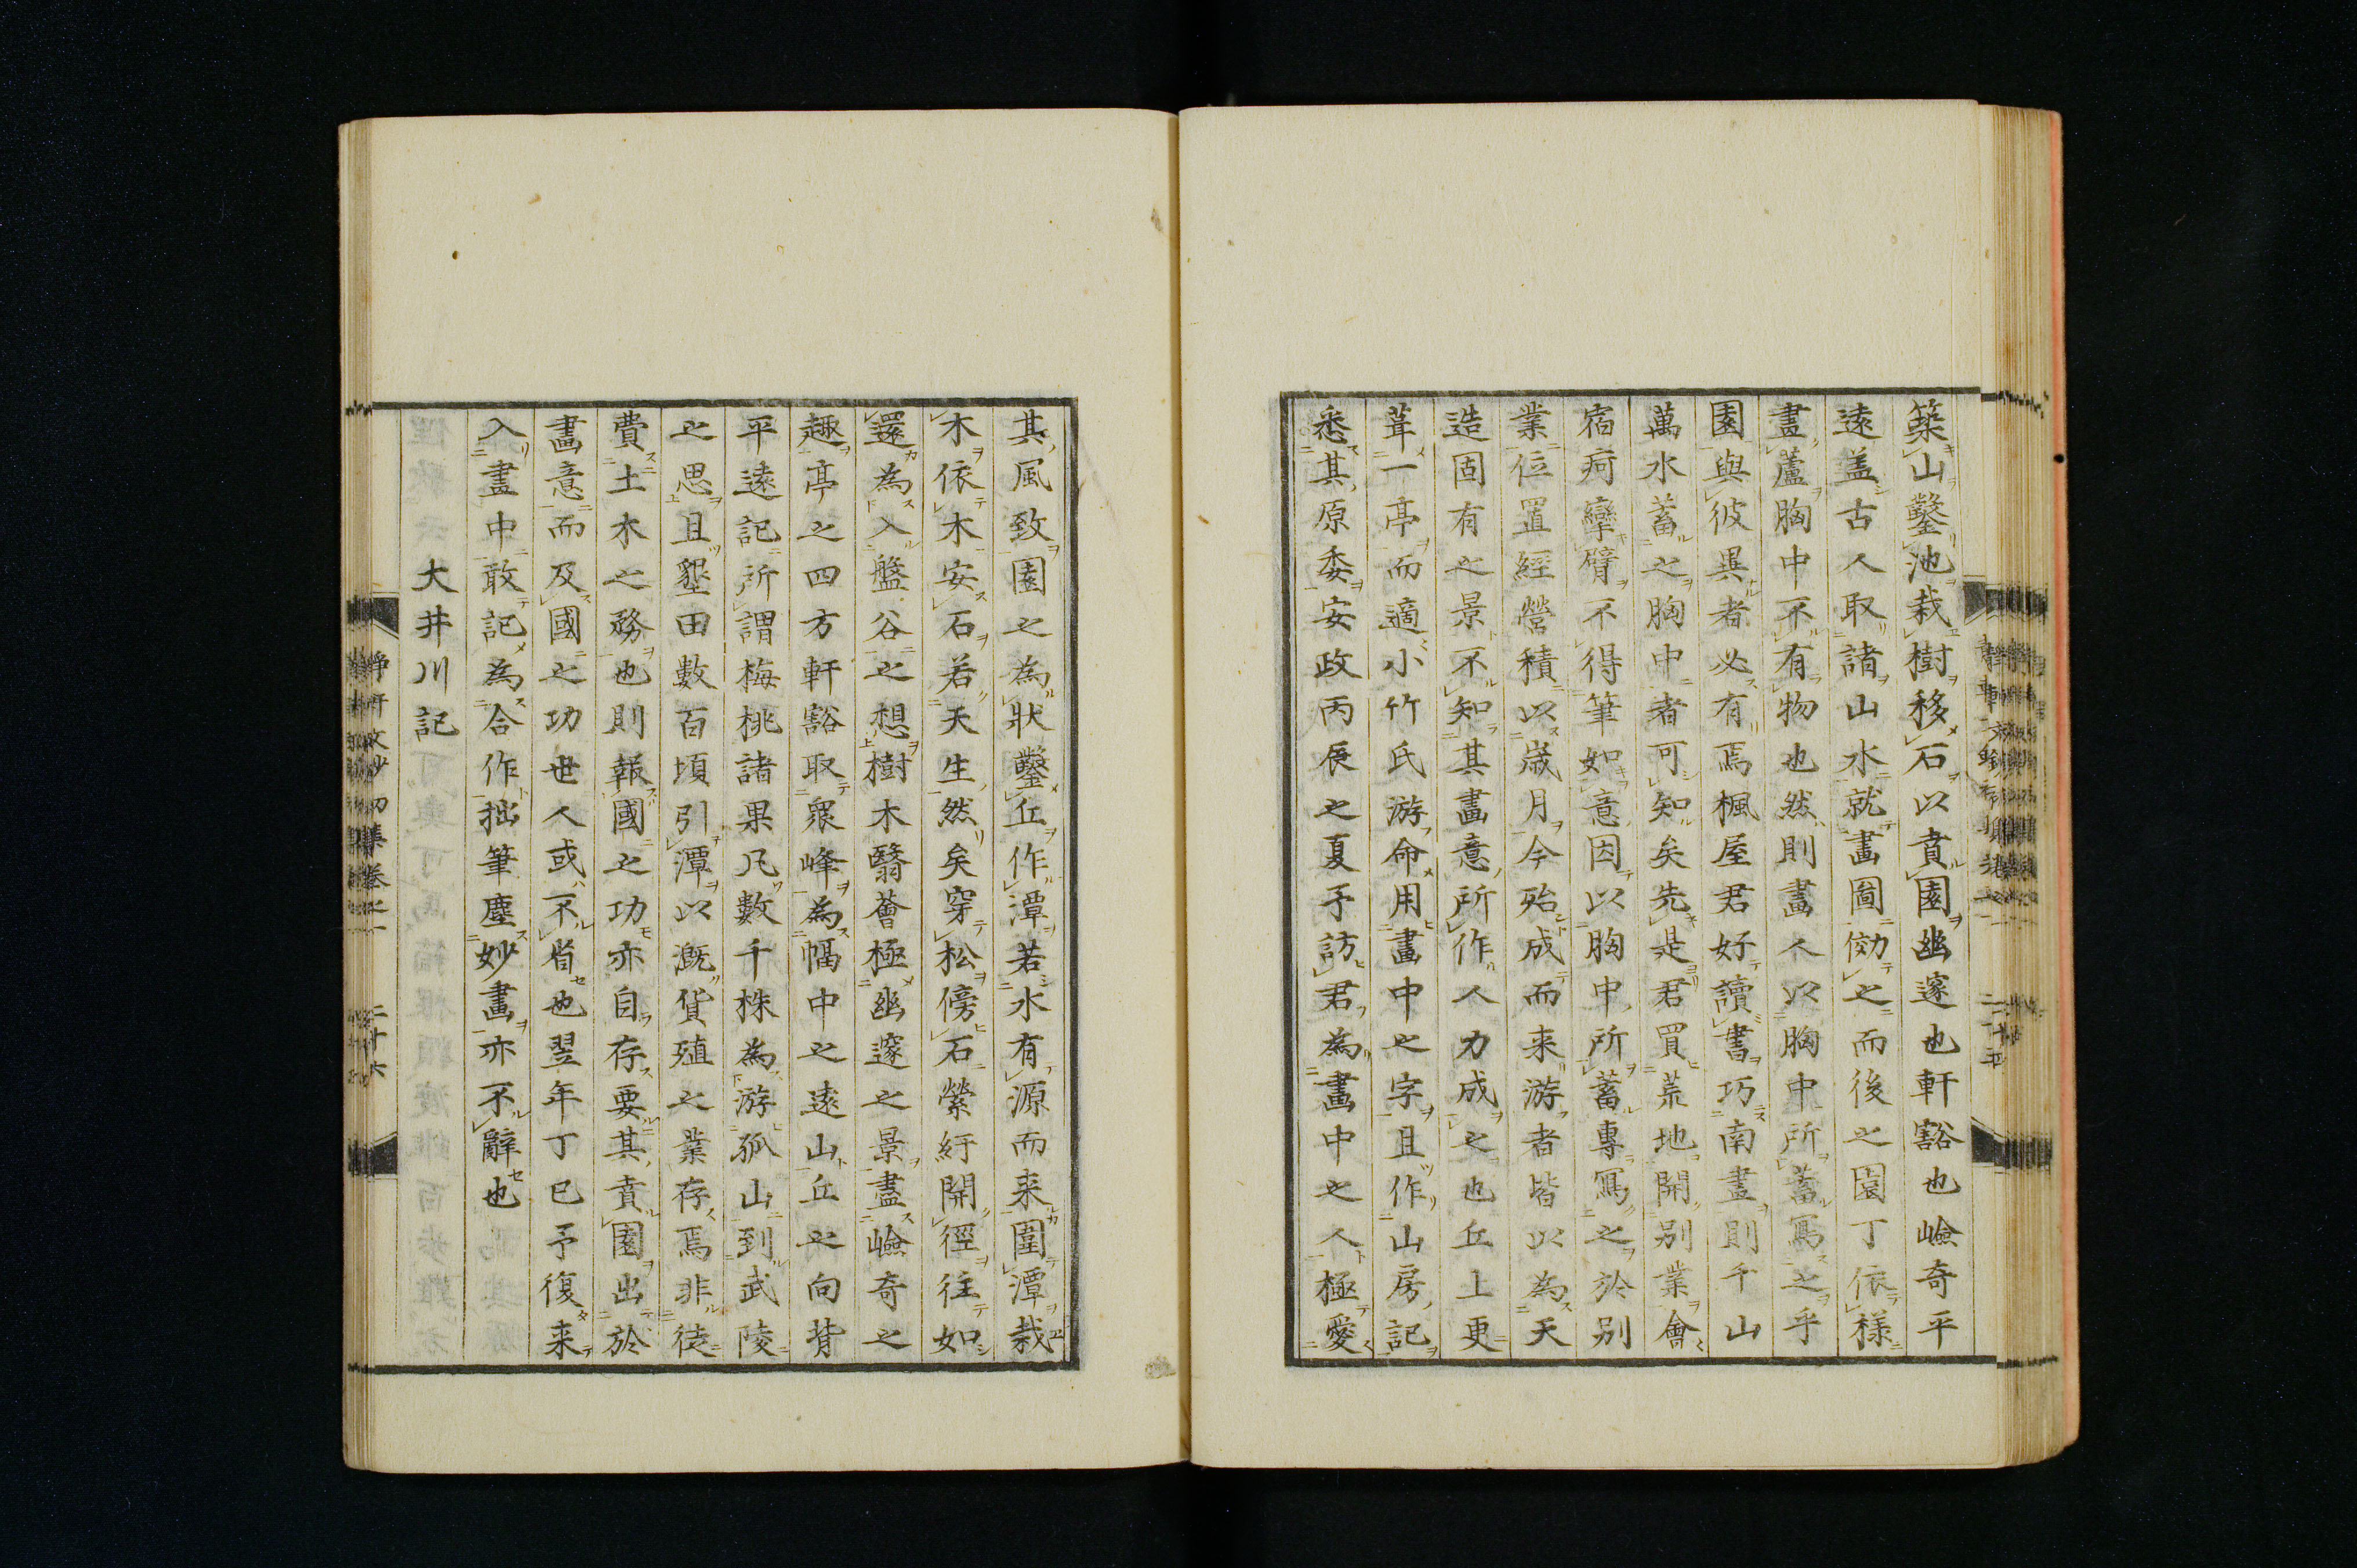 築山鑿池栽樹移石以賁園幽邃也軒豁也嶮奇平
遠盖古人取諸山水就畫圖効之而後之園丁依様
畫蘆胸中不有物也然則畫人以胸中所蓄寫之乎
園與彼異者必有焉楓屋君好讀書巧南畫則千山
萬水蓄之胸中者可知矣先是君買荒地開别業會
宿痾攣臂不得筆如意因以胸中所蓄專寫之於别
業位置經營積以歳月今殆成而来游者皆以為天
造固有之景不知其畫意所作人力成之也丘上更
葺一亭而適小竹氏游命用畫中之字且作山房記
悉其原委安政丙辰之夏予訪君為畫中之人極愛
其風致園之為狀鑿丘作潭若水有源而来圍潭栽
木依木安石若天生然矣穿松傍石縈紆開徑往如
還為入盤谷之想樹木翳薈極幽邃之景盡嶮奇之
趣亭之四方軒豁取衆峰為幅中之遠山丘之向背
平遠記所謂梅桃諸果凡數千株為游孤山到武陵
之思且墾田數百頃引潭以漑貨殖之業存焉非徒
費土木之務也則報國之功亦自存要其賁園出於
畫意而及國之功世人或不省也翌年丁巳予復来
入畫中敢記為合作拙筆塵妙畫亦不辭也
大井川記
二十六